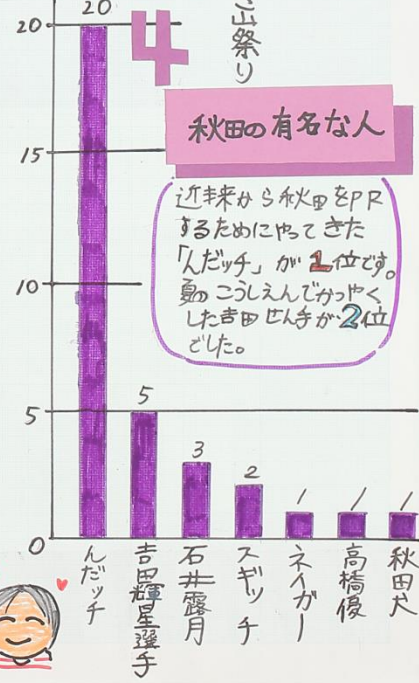 20
4
祭り
秋田の有名な人
近未来から秋田をPR
するためにやってきた
「んだッチ」が1位です。
夏のこうしえんでかつやく
した吉田せん手が2位
でした。
20
15
10
5
0
5
3
2
1
1
1
んだッチ
吉田輝星選手
石井露月
スギッチ
ネイガー
高橋優
秋田犬